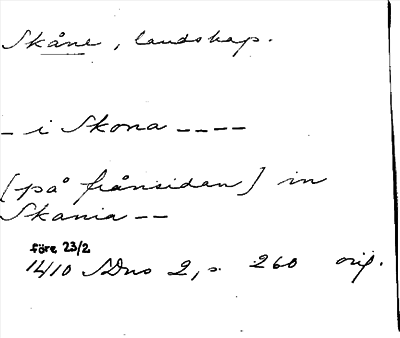 Skåne, landskap.
_ i Skona _ _ _ _
[på frånsidan] in
Skania _ _
före 23/2
1410 SDns 2, s. 260 orig.